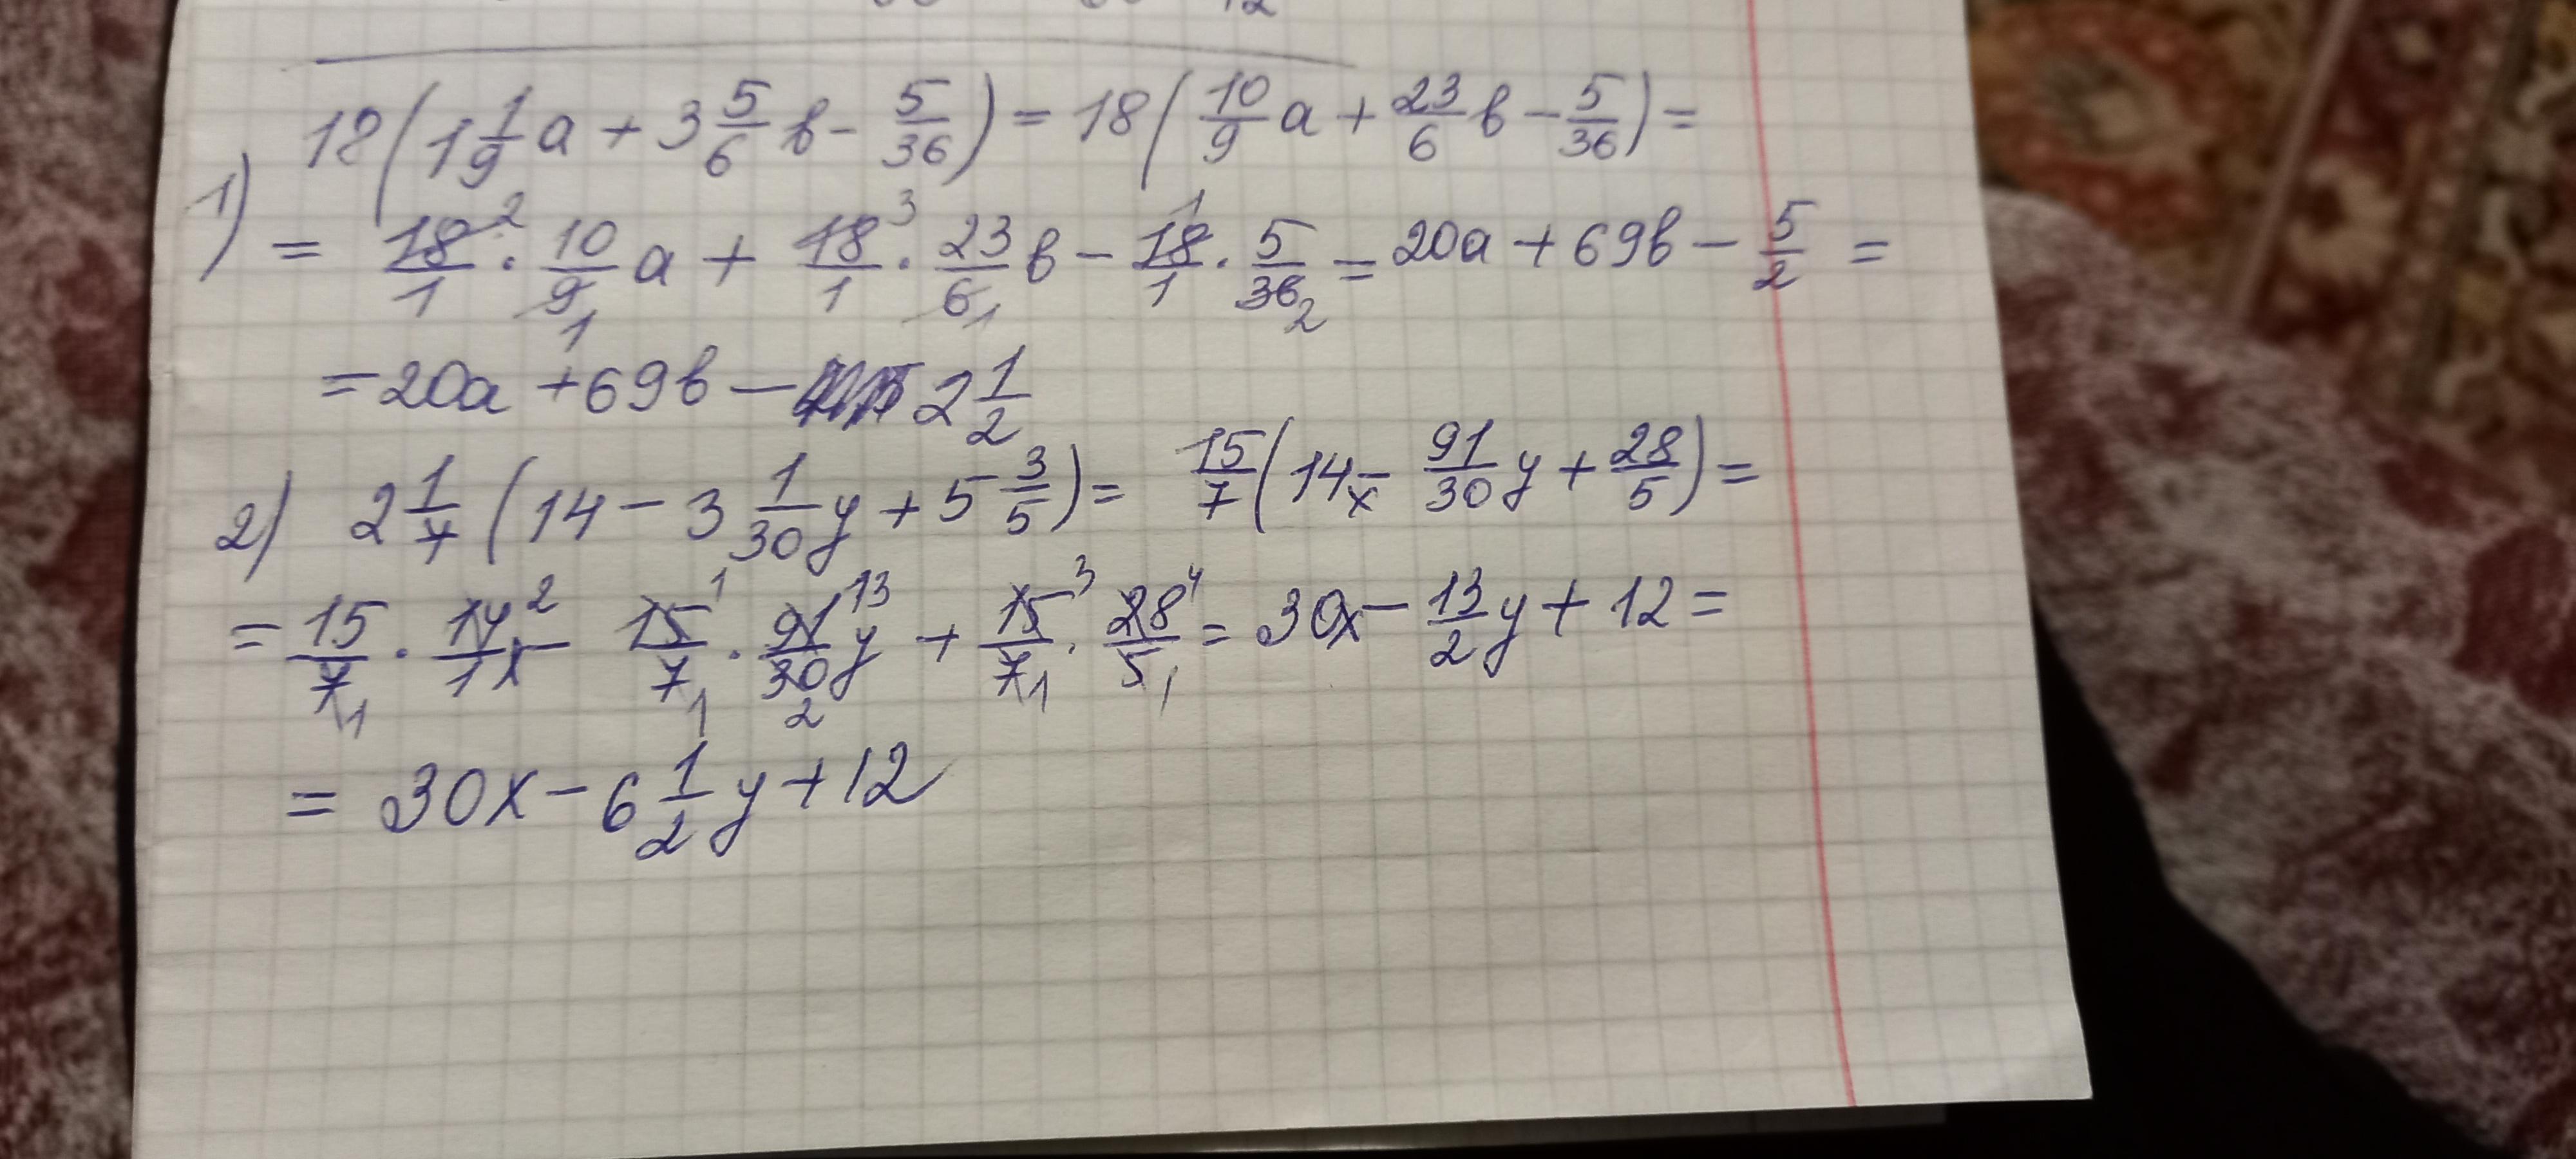 18(1 1/9 a + 3 5/6 b - 5/36) = 18(10/9 a + 23/6 b - 5/36) =
1) = 18²/1 · 10/9₁ a + 18³/1 · 23/6₁ b - 18¹/1 · 5/36₂ = 20a + 69b - 5/2 =
= 20a + 69b - 2 1/2
2) 2 1/7 (14 - 3 1/30 y + 5 3/5) = 15/7 (14x - 91/30 y + 28/5) =
= 15/7₁ · 14²/1 x - 15¹/7₁ · 91¹³/30₂ y + 15³/7₁ · 28⁴/5₁ = 30x - 13/2 y + 12 =
= 30x - 6 1/2 y + 12